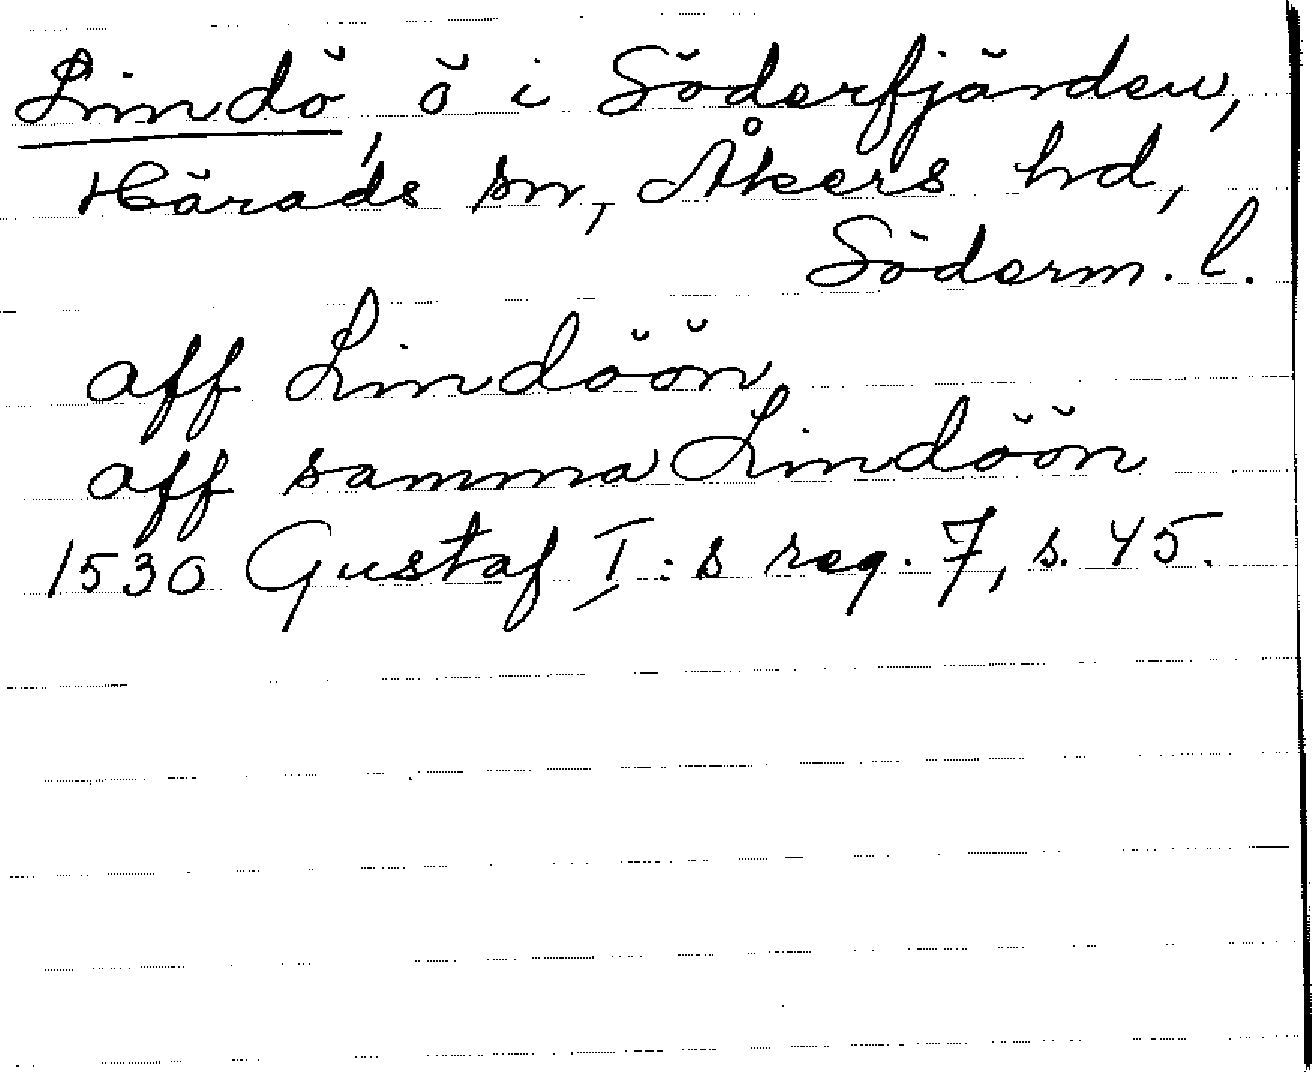 Lindö, ö i Söderfjärden,
Härads sn, Åkers hd,
Söderm. l.
aff Lindöön,
aff samma Lindöön
1530 Gustaf I:s reg. 7, s. 45.